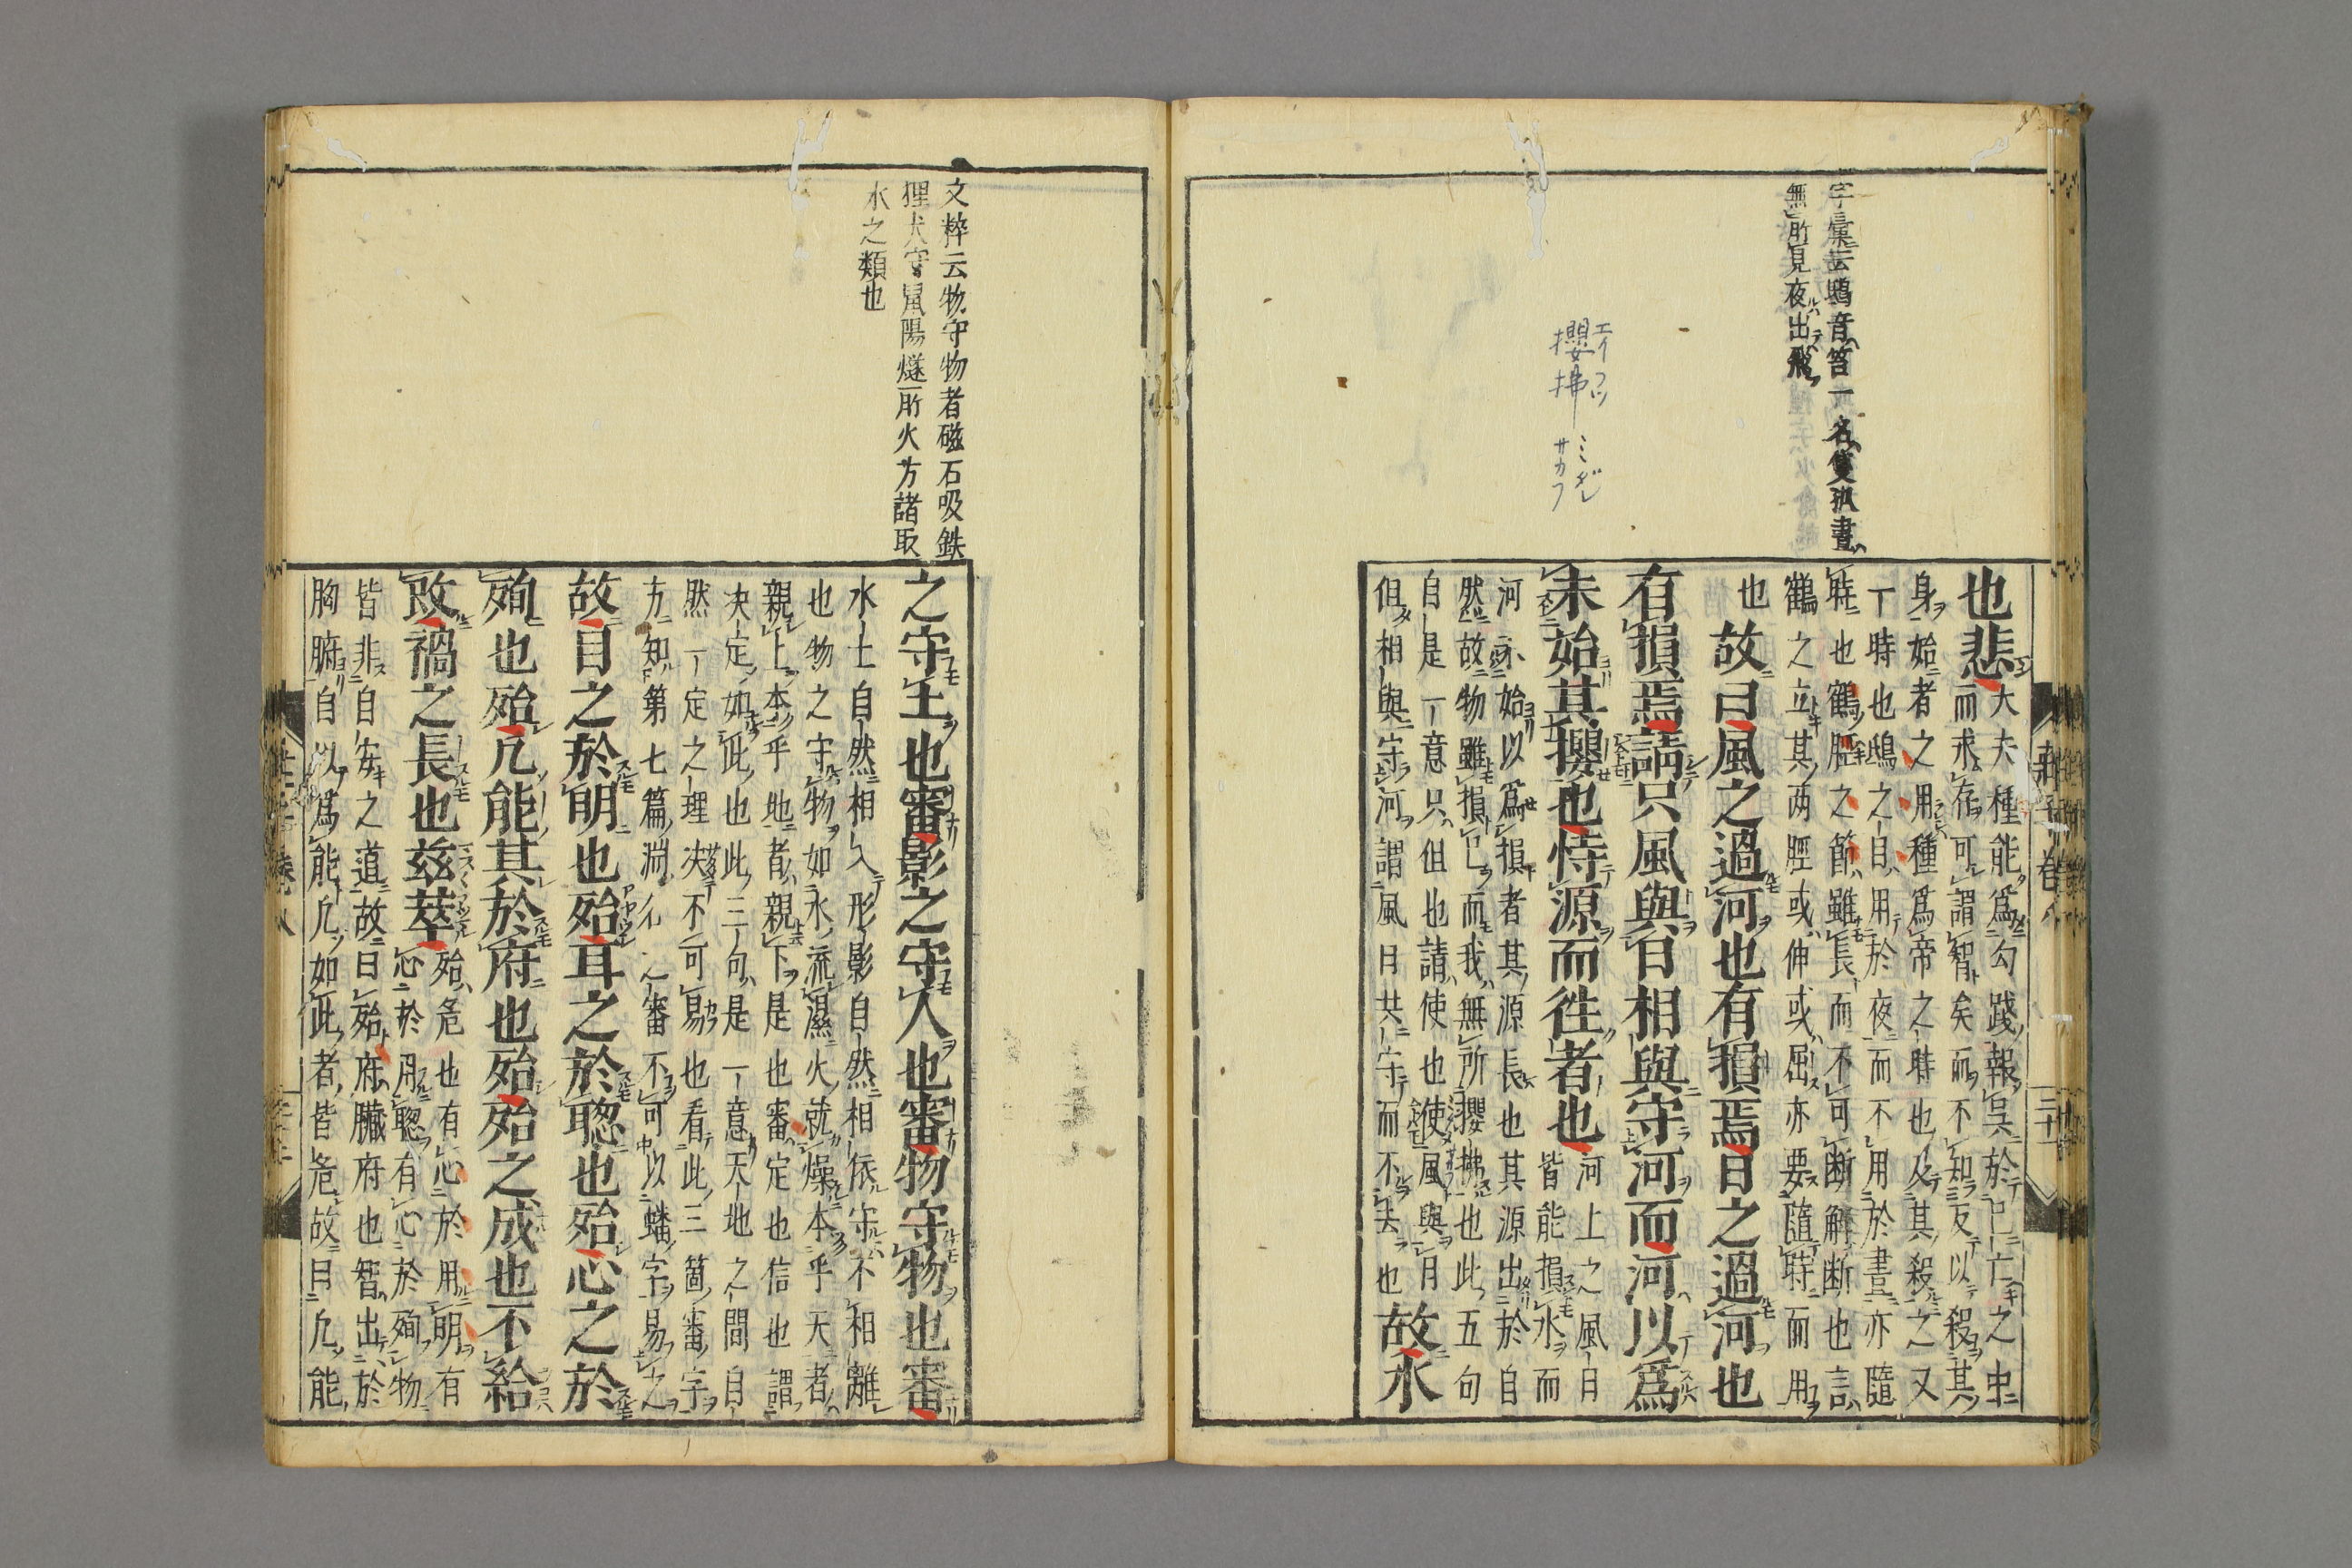 字彙云鴟音笞一名隻狐晝
無所見夜出飛
攖拂
エイフツ
ミダレ
サカフ
也悲大夫種能爲勾踐報吳於已亡之中
而求存可謂智矣而不知反以殺其
身始者之用種爲帝之時也及其殺之又
一時也鴟之目用於夜而不用於晝亦隨
時也鶴脛之節雖長而不可斷解斷也言
鶴之立其兩脛或伸或屈亦要隨時而用
也故曰風之過河也有損焉日之過河也
有損焉請只風與日相與守河而河以爲
未始其攖也恃源而往者也河上之風日
皆能損水而
河未始以爲損者其源長也其源出於自
然故物雖損已而我無所攖拂也此五句
自是一意只但也請使也使風與日
但相與守河謂風日共守而不去也故水
文粹云物守物者磁石吸鉄
狸犬守鼠陽燧所火方諸取
水之類也
之守土也審影之守人也審物守物也審
水土自然相入形影自然相依守不相離
也物之守物如水流濕火就燥本乎天者
親上本乎地者親下是也審定也信也謂
决定如此也此三句是一意天地之間自
然一定之理决不可易也看此三箇審字
方知第七篇淵之審不可以蟠字易之
故目之於明也殆耳之於聰也殆心之於
殉也殆凡能其於府也殆殆之成也不給
改禍之長也茲萃殆危也有心於用明有
心於用聰有心於殉物
皆非自安之道故曰殆府臟府也智出於
胸腑自以爲能凡如此者皆危故曰凡能